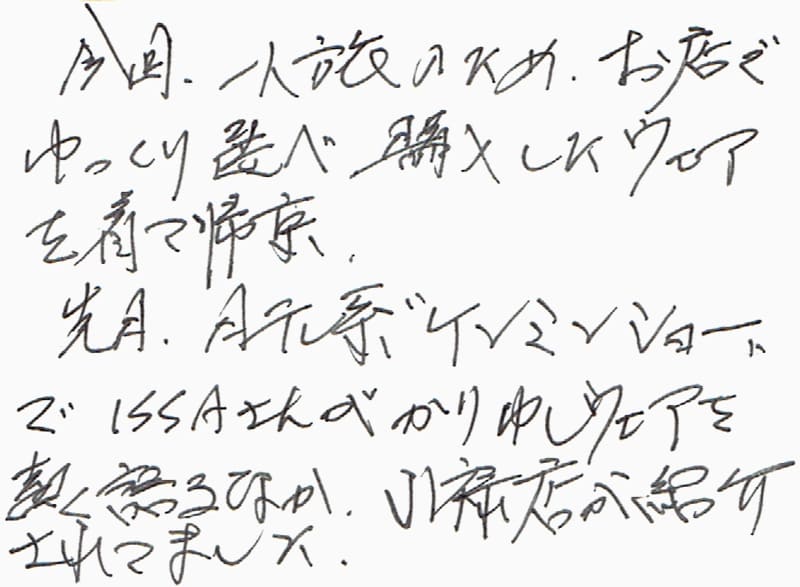 今回、一人旅のため、お店で
ゆっくり選べ購入したウェア
を着て帰京、
先月、月元系"ケンミンショー"
で ISSAさんがかりゆしウェアを
熱く語るなか、店が紹介
されてました、